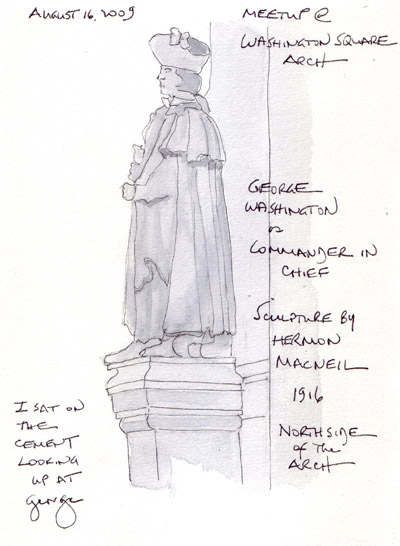 AUGUST 16, 2009
MEETUP @
WASHINGTON SQUARE
ARCH
GEORGE
WASHINGTON
COMMANDER IN
CHIEF
SCULPTURE BY
HERMON
MACNEIL
1916
NORTH SIDE
of The
ARCH
I SAT ON
THE
CEMENT
LOOKING
UP AT
George